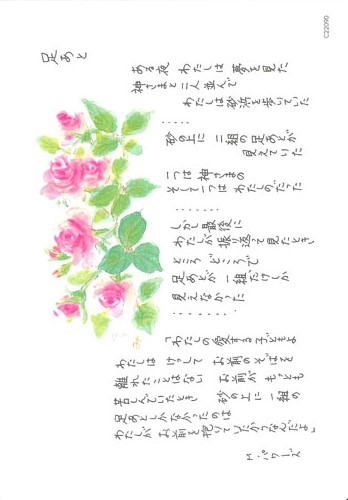 C22090
足あと
ある夜 わたしは 夢を見た
神さまと二人並んで
わたしは砂浜を歩いていた
・・・・・
砂の上に 二組の足あとが
見えていた
一つは神さまの
そして一つは わたしのだった
・・・・・・・
しかし最後に
わたしが振り返って見たとき
ところどころで
足あとが 一組だけしか
見えなかった
・・・・・・・・
「わたしの愛する子どもよ
わたしは けっして お前のそばを
離れたことはない お前が もっとも
苦しんでいたとき 砂の上に 一組の
足あとしかなかったのは
わたしが お前を抱いていたからなんだよ」
M・パワーズ